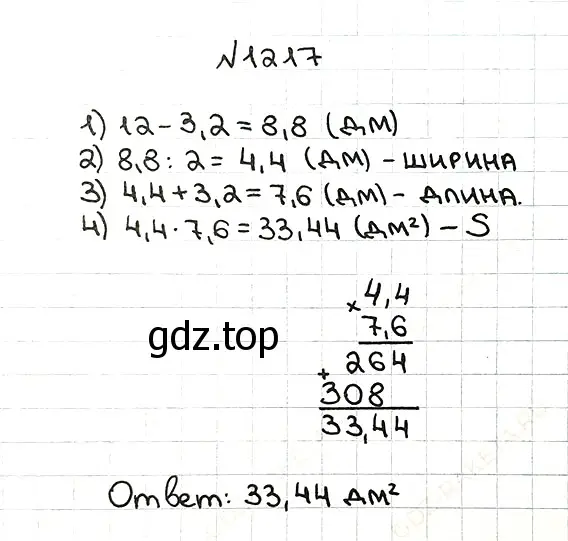 №1217
1) 12 - 3,2 = 8,8 (дм)
2) 8,8 : 2 = 4,4 (дм) - ширина
3) 4,4 + 3,2 = 7,6 (дм) - длина.
4) 4,4 · 7,6 = 33,44 (дм²) - S
× 4,4
7,6
gdz.top
+ 264
308
33,44
Ответ: 33,44 дм²